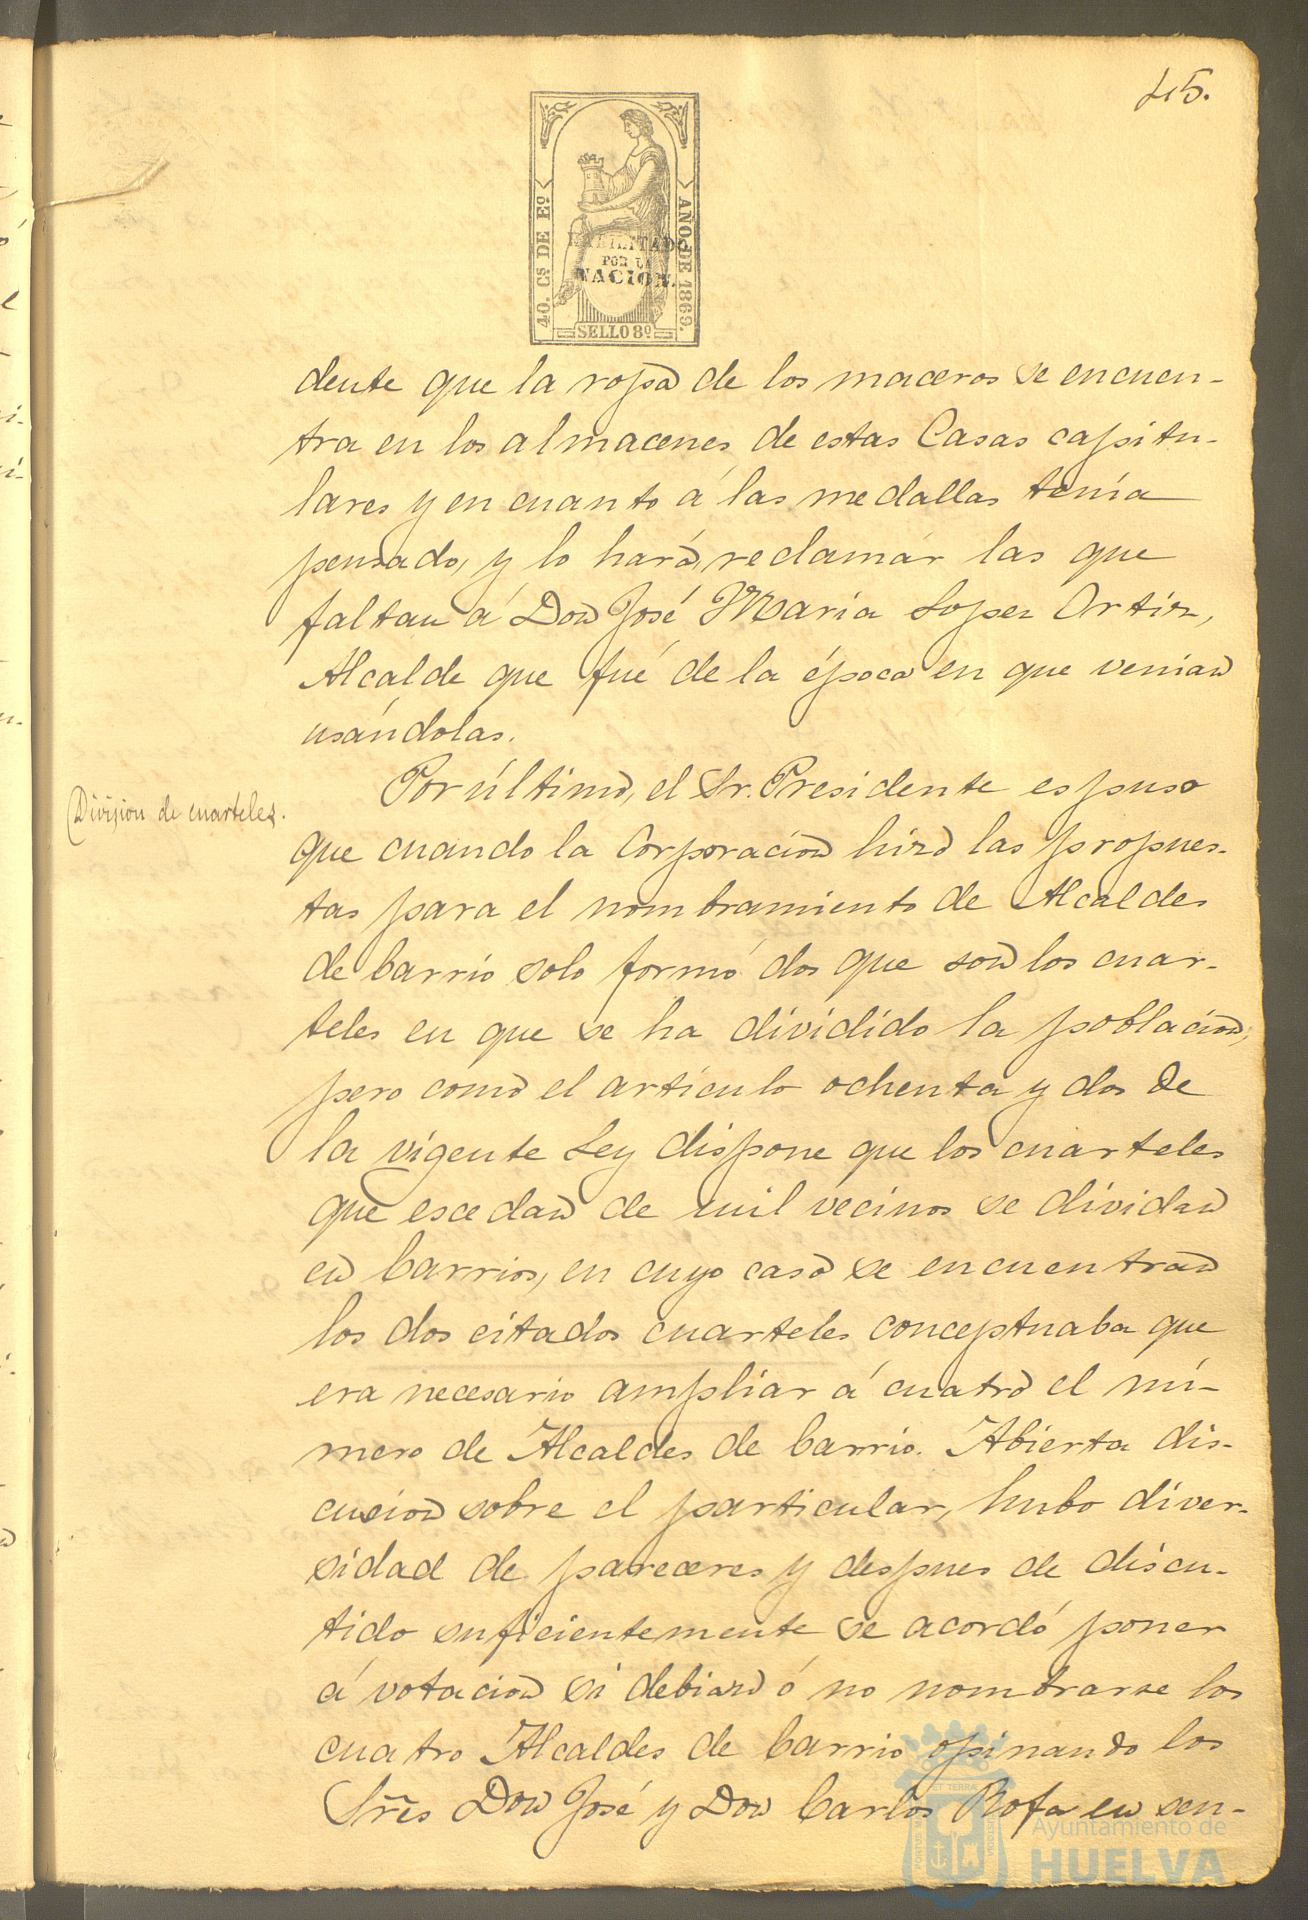 45.
40. Cs DE Eo
AÑO DE 1869.
HABILITADO
POR LA
NACION.
SELLO 8º
dente que la ropa de los maceros se encuen-
tra en los almacenes de estas Casas capitu-
lares y en cuanto á las medallas tenía
pensado, y lo hará, reclamár las que
faltan á Don José Maria Lopez Ortiz,
Alcalde que fué de la época en que venian
usándolas.
Division de cuarteles.
Por último, el Sr. Presidente espuso
que cuando la Corporacion hizo las propues-
tas para el nombramiento de Alcaldes
de barrio solo formó dos que son los cuar-
teles en que se ha dividido la poblacion,
pero como el articulo ochenta y dos de
la vigente Ley dispone que los cuarteles
que escedan de mil vecinos se dividan
en barrios, en cuyo caso se encuentran
los dos citados cuarteles conceptuaba que
era necesario ampliar á cuatro el nú-
mero de Alcaldes de barrio. Abierta dis-
cusion sobre el particular, hubo diver-
sidad de pareceres y despues de discu-
tido suficientemente se acordó poner
á votacion si debian ó no nombrarse los
cuatro Alcaldes de barrio opinando los
Sres Don José y Don Carlos Rofa en sen-
Ayuntamiento de
HUELVA